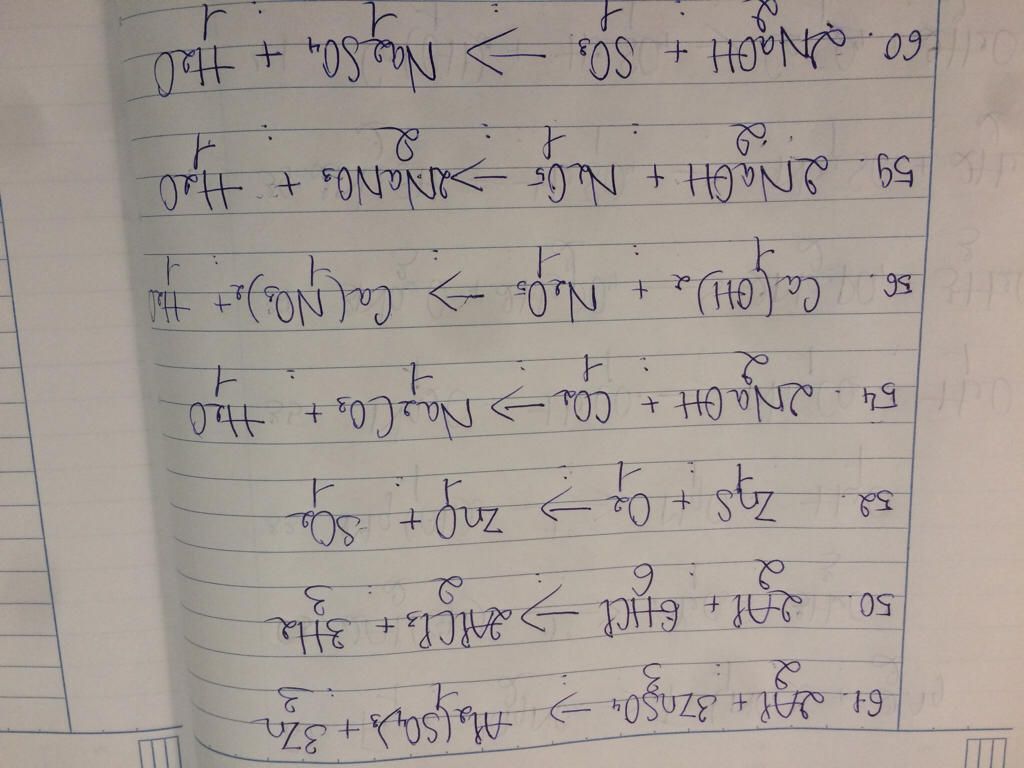 61. 2Al + 3ZnSO₄ → Al₂(SO₄)₃ + 3Zn
2 : 3 : 1 : 3
50. 2Al + 6HCl → 2AlCl₃ + 3H₂
2 : 6 : 2 : 3
52. ZnS + O₂ → ZnO + SO₂
1 : 1 : 1 : 1
54. 2NaOH + CO₂ → Na₂CO₃ + H₂O
2 : 1 : 1 : 1
56. Ca(OH)₂ + N₂O₅ → Ca(NO₃)₂ + H₂O
1 : 1 : 1 : 1
59. 2NaOH + N₂O₅ → 2NaNO₃ + H₂O
2 : 1 : 2 : 1
60. 2NaOH + SO₃ → Na₂SO₄ + H₂O
2 : 1 : 1 : 1